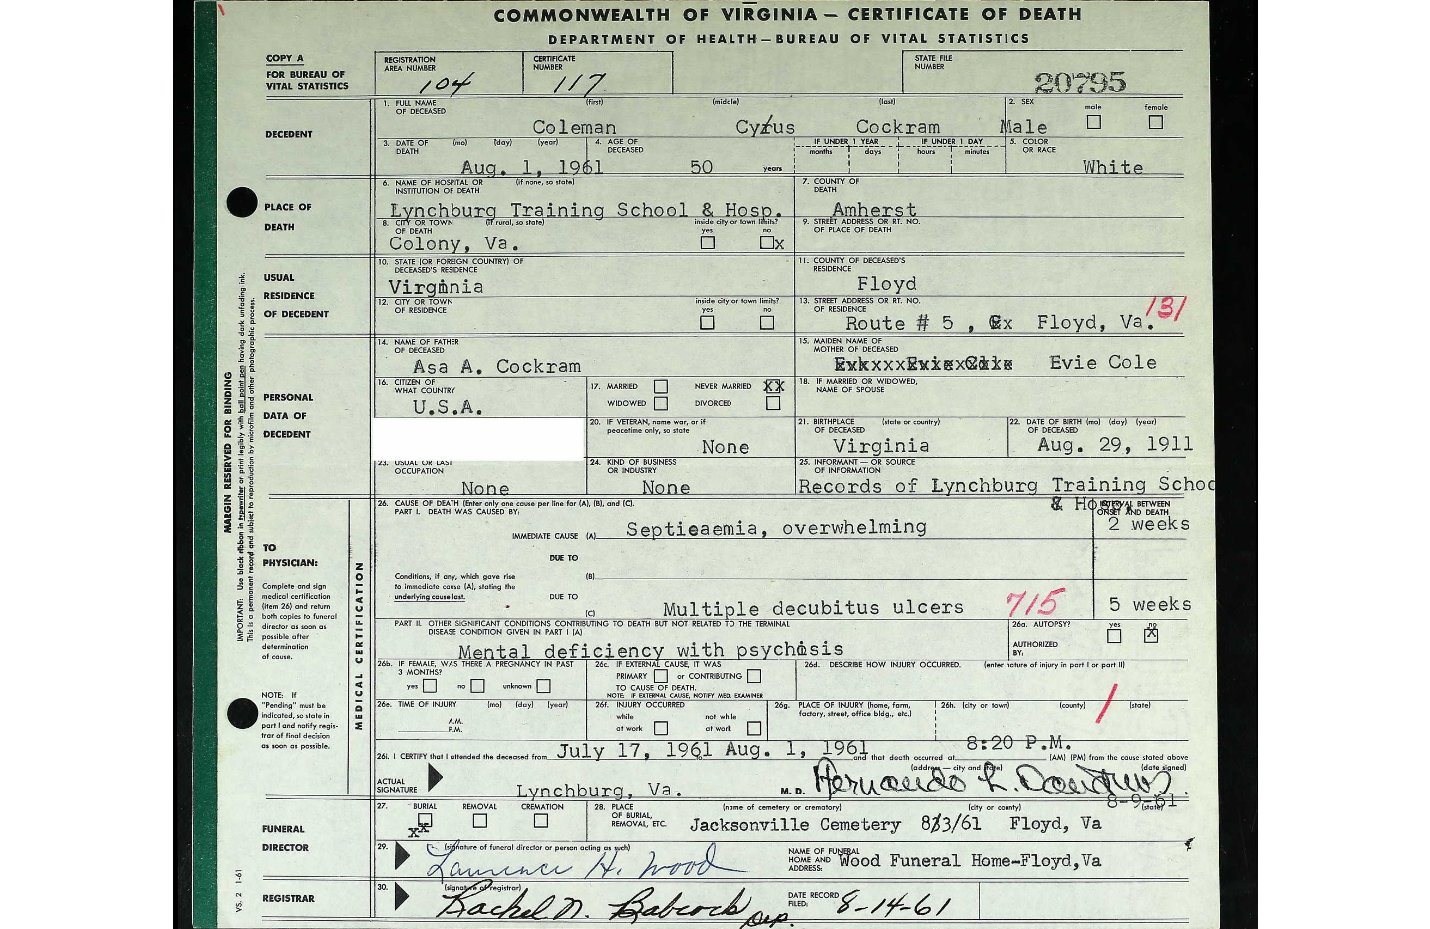 COMMONWEALTH OF VIRGINIA — CERTIFICATE OF DEATH
DEPARTMENT OF HEALTH—BUREAU OF VITAL STATISTICS
COPY A
FOR BUREAU OF
VITAL STATISTICS
REGISTRATION
AREA NUMBER
104
CERTIFICATE
NUMBER
117
STATE FILE
NUMBER
20795
DECEDENT
1. FULL NAME
OF DECEASED
(first) (middle) (last)
Coleman Cyrus Cockram
2. SEX
male female
Male
3. DATE OF
DEATH
(mo) (day) (year)
Aug. 1, 1961
4. AGE OF
DECEASED
50 years
IF UNDER 1 YEAR
months days
IF UNDER 1 DAY
hours minutes
5. COLOR
OR RACE
White
PLACE OF
DEATH
6. NAME OF HOSPITAL OR (if none, so state)
INSTITUTION OF DEATH
Lynchburg Training School & Hosp.
7. COUNTY OF
DEATH
Amherst
8. CITY OR TOWN (if rural, so state)
OF DEATH
Colony, Va.
inside city or town limits?
yes no
x
9. STREET ADDRESS OR RT. NO.
OF PLACE OF DEATH
USUAL
RESIDENCE
OF DECEDENT
10. STATE (OR FOREIGN COUNTRY) OF
DECEASED'S RESIDENCE
Virginia
11. COUNTY OF DECEASED'S
RESIDENCE
Floyd
12. CITY OR TOWN
OF RESIDENCE
inside city or town limits?
yes no
13. STREET ADDRESS OR RT. NO.
OF RESIDENCE
131
Route # 5 , x Floyd, Va.
PERSONAL
DATA OF
DECEDENT
14. NAME OF FATHER
OF DECEASED
Asa A. Cockram
15. MAIDEN NAME OF
MOTHER OF DECEASED
Evie Cole
16. CITIZEN OF
WHAT COUNTRY
U.S.A.
17. MARRIED NEVER MARRIED xx
WIDOWED DIVORCED
18. IF MARRIED OR WIDOWED,
NAME OF SPOUSE
20. IF VETERAN, name war, or if
peacetime only, so state
None
21. BIRTHPLACE (state or country)
OF DECEASED
Virginia
22. DATE OF BIRTH (mo) (day) (year)
OF DECEASED
Aug. 29, 1911
23. USUAL OR LAST
OCCUPATION
None
24. KIND OF BUSINESS
OR INDUSTRY
None
25. INFORMANT — OR SOURCE
OF INFORMATION
Records of Lynchburg Training Schoo
MARGIN RESERVED FOR BINDING
TO
PHYSICIAN:
Complete and sign
medical certification
(item 26) and return
both copies to funeral
director as soon as
possible after
determination
of cause.
NOTE: If
"Pending" must be
indicated, so state in
part I and notify regis-
trar of final decision
as soon as possible.
MEDICAL CERTIFICATION
26. CAUSE OF DEATH (Enter only one cause per line for (A), (B), and (C).
PART I. DEATH WAS CAUSED BY:
INTERVAL BETWEEN
ONSET AND DEATH
IMMEDIATE CAUSE (A) Septicaemia, overwhelming 2 weeks
DUE TO
Conditions, if any, which gave rise
to immediate cause (A), stating the
underlying cause last.
(B)
DUE TO
(C) Multiple decubitus ulcers 715 5 weeks
PART II. OTHER SIGNIFICANT CONDITIONS CONTRIBUTING TO DEATH BUT NOT RELATED TO THE TERMINAL
DISEASE CONDITION GIVEN IN PART I (A)
Mental deficiency with psychosis
26a. AUTOPSY? yes no
X
AUTHORIZED
BY:
26b. IF FEMALE, WAS THERE A PREGNANCY IN PAST
3 MONTHS?
yes no unknown
26c. IF EXTERNAL CAUSE, IT WAS
PRIMARY or CONTRIBUTING
TO CAUSE OF DEATH.
NOTE: IF EXTERNAL CAUSE, NOTIFY MED. EXAMINER
26d. DESCRIBE HOW INJURY OCCURRED. (enter nature of injury in part I or part II)
26e. TIME OF INJURY (mo) (day) (year)
A.M.
P.M.
26f. INJURY OCCURRED
while not while
at work at work
26g. PLACE OF INJURY (home, farm,
factory, street, office bldg., etc.)
26h. (city or town) (county) (state)
26i. I CERTIFY that I attended the deceased from July 17, 1961 Aug. 1, 1961 and that death occurred at 8:20 P.M. (AM) (PM) from the cause stated above
(address — city and state) (date signed)
ACTUAL
SIGNATURE
Lynchburg, Va. M. D.
8-9-61
FUNERAL
DIRECTOR
27. BURIAL REMOVAL CREMATION
xx
28. PLACE
OF BURIAL,
REMOVAL, ETC.
(name of cemetery or crematory) (city or county) (state)
Jacksonville Cemetery 8/3/61 Floyd, Va
29. (signature of funeral director or person acting as such)
Laurence H. Wood
NAME OF FUNERAL
HOME AND
ADDRESS:
Wood Funeral Home-Floyd,Va
REGISTRAR
30. (signature of registrar)
Rachel N. Babcock Dep.
DATE RECORD
FILED:
8-14-61
VS. 2 1-61